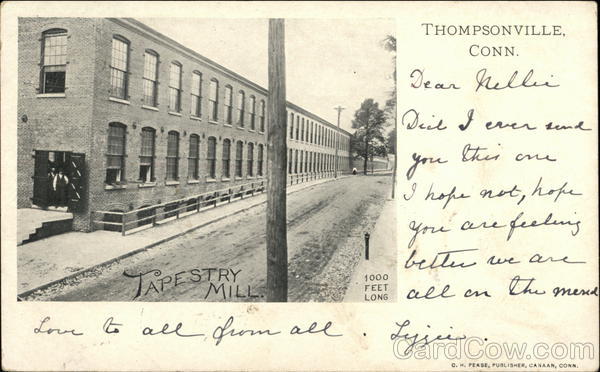 THOMPSONVILLE,
CONN.
Dear Nellie
Did I ever send
you this one
I hope not, hope
you are feeling
better we are
all on the mend
TAPESTRY
MILL.
1000
FEET
LONG
Love to all from all. Lizzie.
C. H. PEASE, PUBLISHER, CANAAN, CONN.
CardCow.com